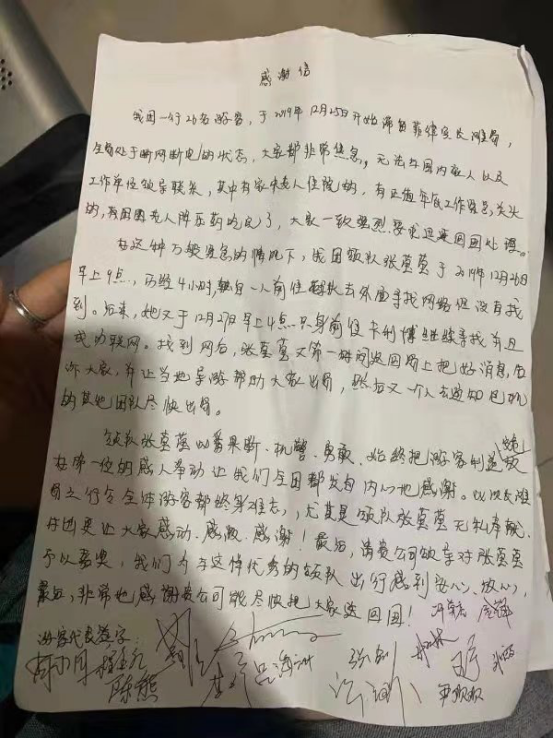 感谢信
我团一行26名游客，于2019年12月25日开始滞留菲律宾长滩岛，
全岛处于断网断电的状态，大家都非常焦急。无法与国内家人以及
工作单位领导联系，其中有家中老人住院的，有正值年底工作紧急关头
的，有团里老人降压药吃完了，大家一致强烈要求迅速回国处理。
在这种万般紧急的情况下，我团领队张萱萱于2019年12月26日
早上9点，历经4小时，独自一人前往去外面寻找网络但没有找
到。后来，她又于12月27日早上4点只身前往卡利博继续寻找并且
成功联网。找到网后，张萱萱又第一时间返回岛上把好消息告
诉大家，并让当地导游帮助大家出岛，然后又一个人去通知包机
的其他团队尽快出岛。
领队张萱萱以着果断、机警、勇敢、始终把游客利益放
在第一位的感人举动让我们全团都发自内心地感谢。此次长滩
岛之行令全体游客都终身难忘，尤其是领队张萱萱无私奉献
的团更让大家感动、感激、感谢！最后，请贵公司领导对张萱萱
予以嘉奖，我们今后与这样优秀的领队出行感到安心、放心，
最后，非常地感谢贵公司能尽快把大家送回国！
游客代表签字：
陈熊